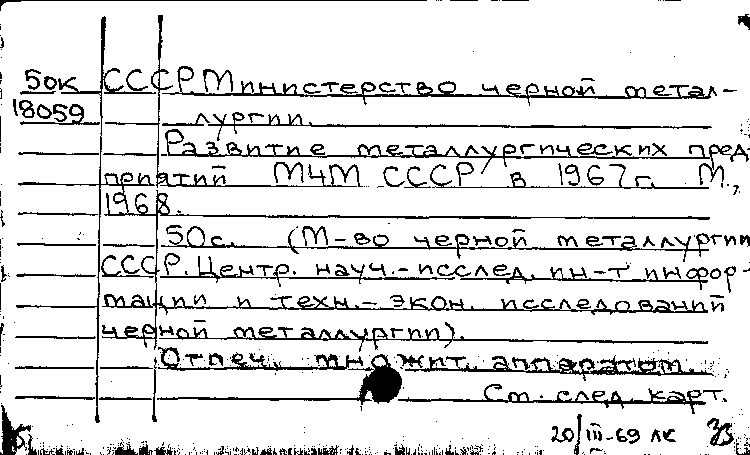 50к СССР. Министерство черной метал-
18059 лургии.
Развитие металлургических пред-
приятий МЧМ СССР в 1967г. М.,
1968.
50с. (М-во черной металлургии
СССР. Центр. науч.-исслед. ин-т инфор-
мации и техн.-экон. исследований
черной металлургии).
Отпеч. множит. аппаратом.
См. след. карт.
20/III-69 ЛК